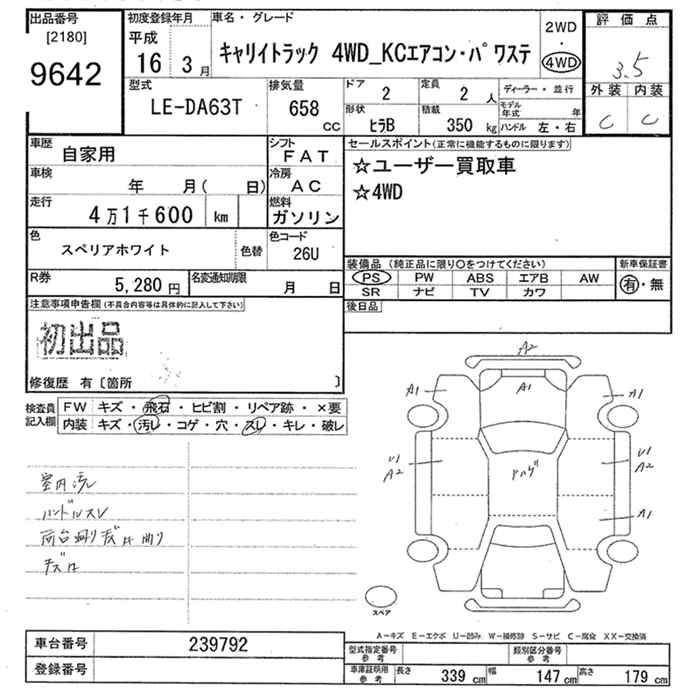 出品番号
[2180]
9642
初度登録年月
平成
16 3月
車名・グレード
キャリイトラック 4WD_KCエアコン・パワステ
2WD
・
4WD
評価点
3.5
外装 内装
C C
型式
LE-DA63T
排気量
658
cc
ドア
2
定員
2 人
ディーラー・並行
モデル年式 年
形状
ヒラB
積載
350 kg
ハンドル 左・右
車歴
自家用
シフト
FAT
車検
年 月( 日)
冷房
AC
走行
4万1千600 km
燃料
ガソリン
色
スペリアホワイト
色替
色コード
26U
R券
5,280円
名変通知期限
月 日
セールスポイント(正常に機能するものに限ります)
☆ユーザー買取車
☆4WD
装備品(純正品に限り〇をつけてください)
PS PW ABS エアB AW
SR ナビ TV カワ
新車保証書
有・無
後日品
注意事項申告欄(不具合内容等は具体的に記入して下さい)
初出品
修復歴 有〔箇所 〕
検査員記入欄
FW キズ・飛石・ヒビ割・リペア跡・×要
内装 キズ・汚レ・コゲ・穴・スレ・キレ・破レ
室内汚レ
ハンドルスレ
A2
A1
A1
A1
U1
A2
U1
A2
A1
スペア
A-キズ E-エクボ U-凹み W-補修跡 S-サビ C-腐食 XX-交換済
車台番号
239792
登録番号
型式指定番号
参考
類別区分番号
参考
車庫証明用
参考
長さ 339 cm 幅 147 cm 高さ 179 cm